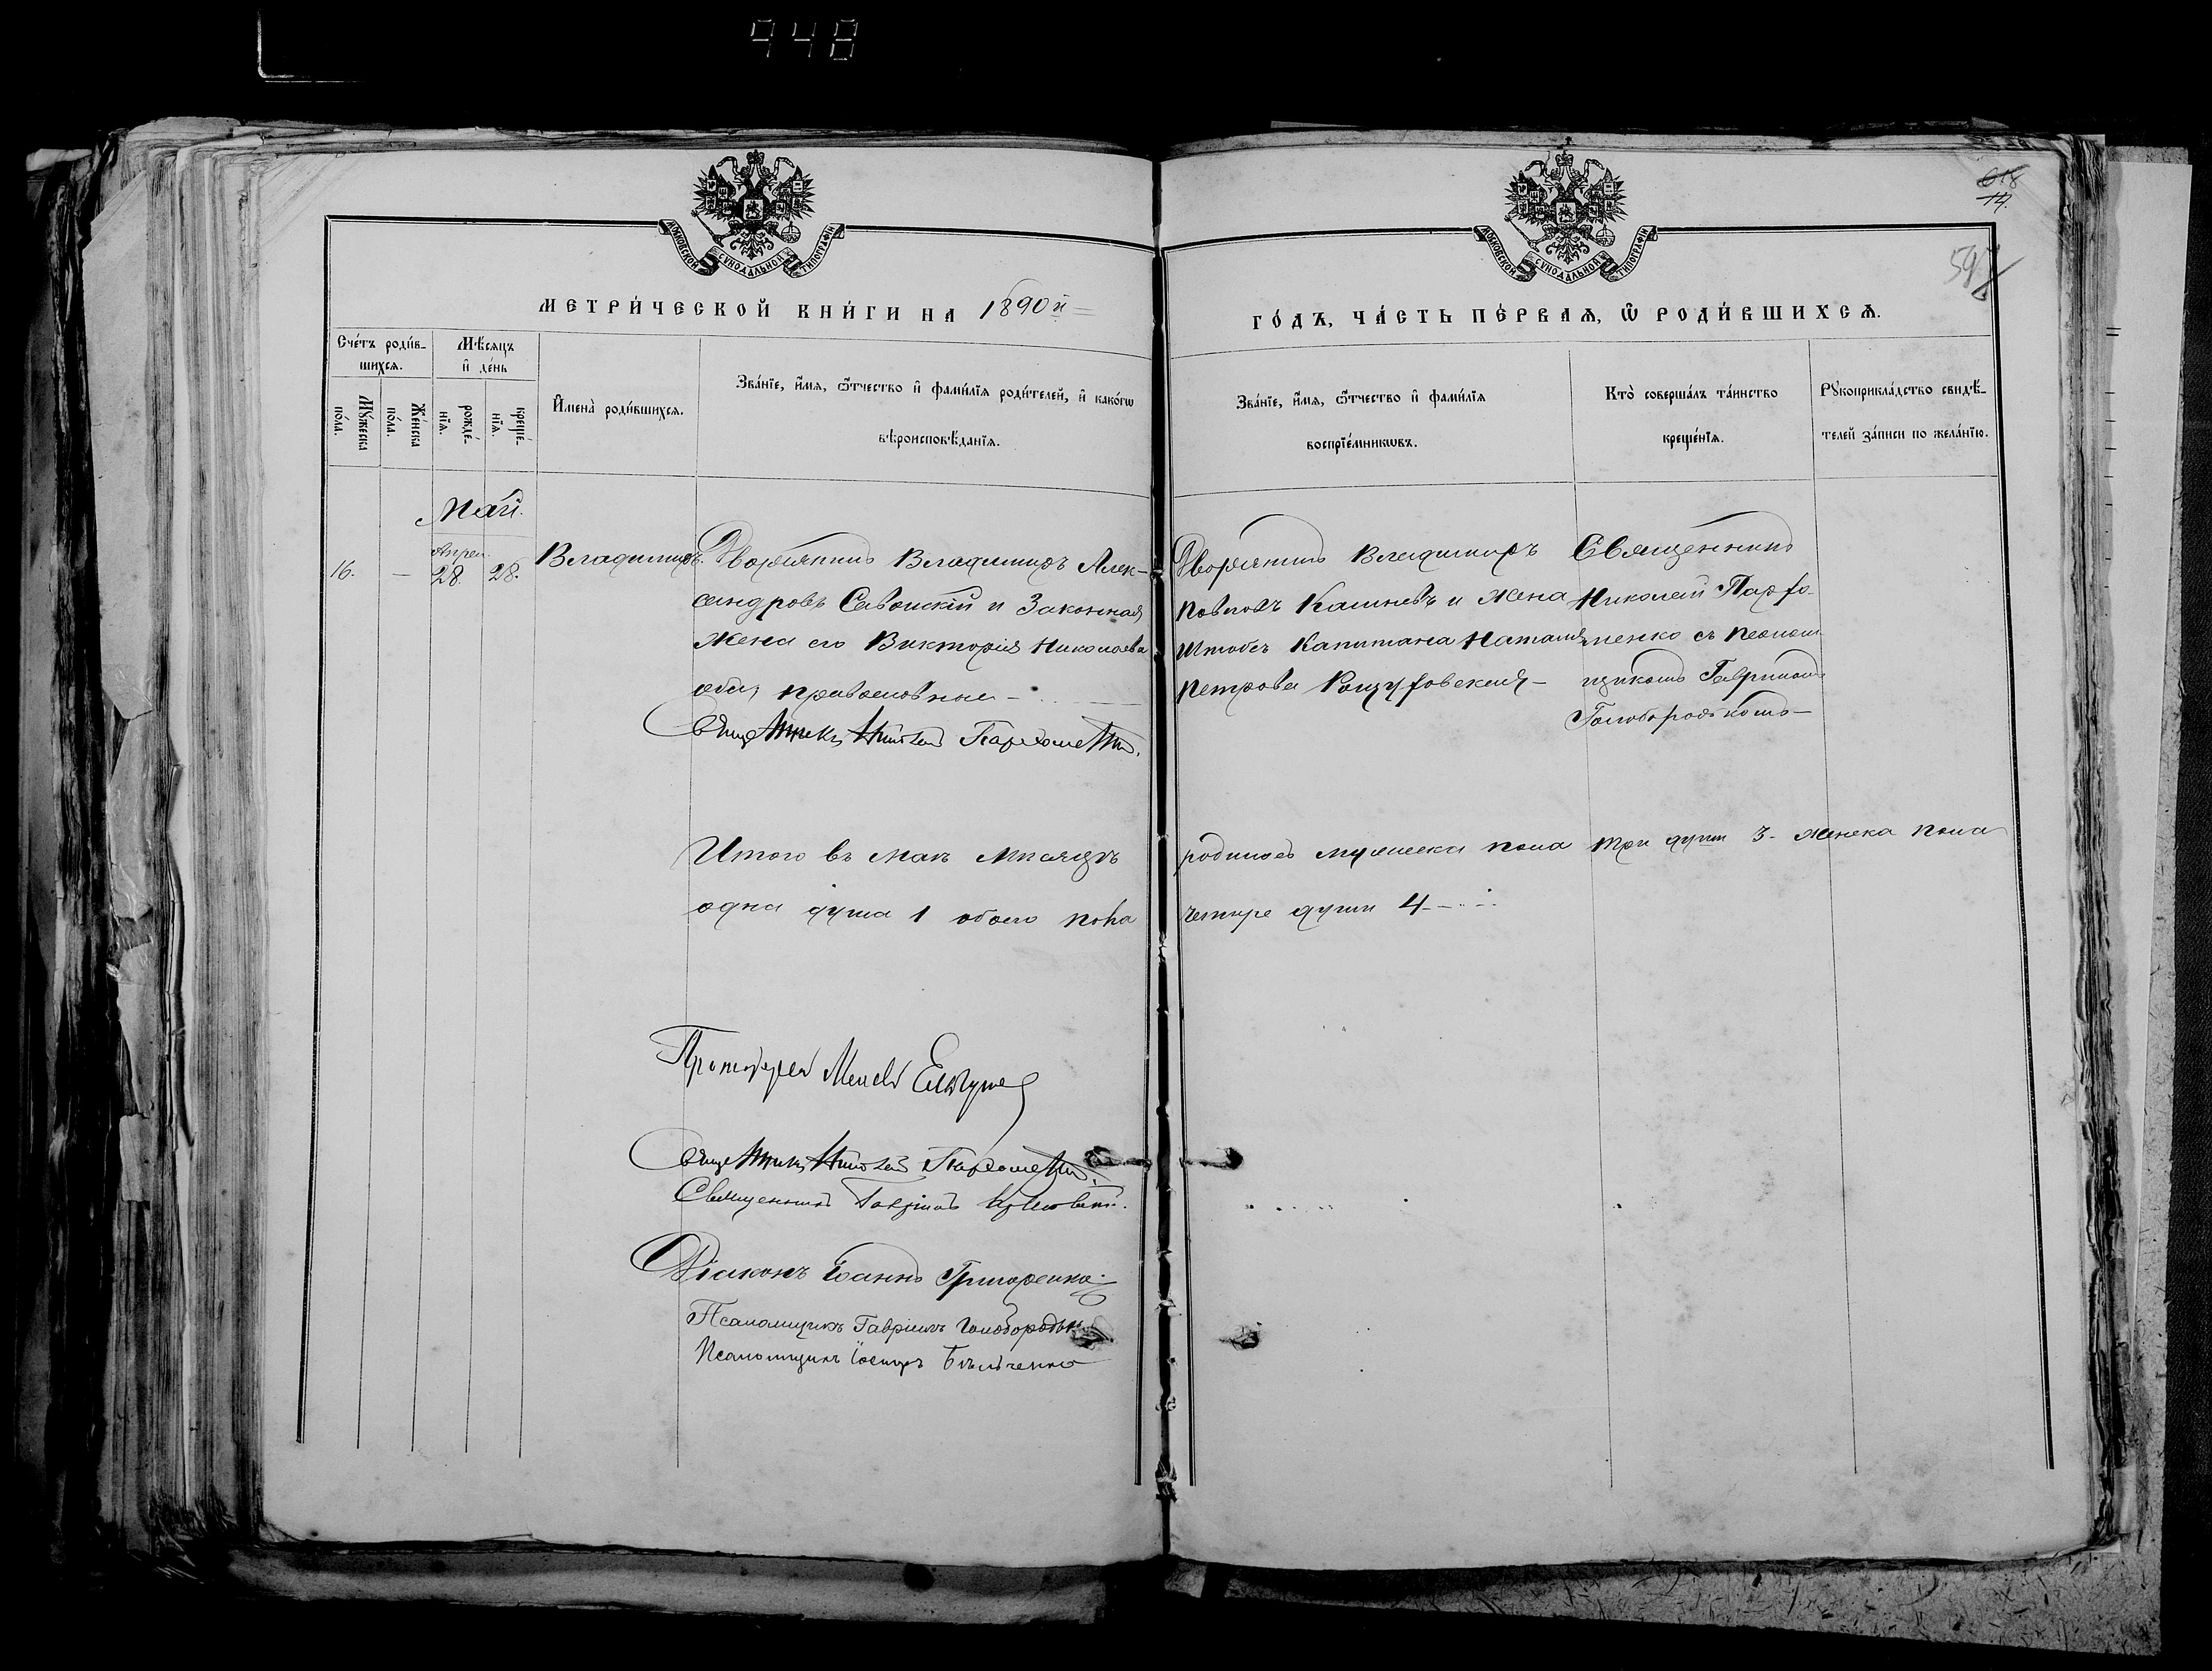 948
618
14.
598
МОСКОВСКОЙ СѴНОДАЛЬНОЙ ТИПОГРАФІИ
МОСКОВСКОЙ СѴНОДАЛЬНОЙ ТИПОГРАФІИ
МЕТРИ́ЧЕСКОЙ КНИ́ГИ НА 1890й
ГО́ДЪ, ЧА́СТЬ ПЕ́РВАѦ, Ѽ РОДИ́ВШИХСѦ.
Сче́тъ роди́в-
шихсѧ.
Мѣсѧцъ
и҆ де́нь
Мꙋ́жеска
по́ла.
Же́нска
по́ла.
рожде́-
нїѧ.
креще́-
нїѧ.
И҆мена̀ роди́вшихсѧ.
Зва́нїе, и҆́мѧ, ѻ҆́тчество и҆ фами́лїѧ роди́телей, и҆ како́гѡ
вѣроисповѣ́данїѧ.
Зва́нїе, и҆́мѧ, ѻ҆́тчество и҆ фами́лїѧ
воспрїе́мникѡвъ.
Кто̀ соверша́лъ та́инство
креще́нїѧ.
Рꙋкоприкла́дство свидѣ́-
телей за́писи по жела́нїю.
Май.
Апрел.
16. — 28. 28. Владимиръ.
Дворянинъ Владимиръ Алек-
сандровъ Савойскій и Законная
Жена его Викторія Николаева
оба православные —
Священникъ Николай Пархоменко.
Дворянинъ Владимиръ
Павловъ и Жена
Штабсъ Капитана Наталія
Петрова —
Священникъ
Николай Парфо-
менко съ Псалом-
щикомъ Гавріиломъ
Голобородькомъ —
Итого въ Маѣ мѣсяцѣ родилось мужеска пола три души 3. женска пола
одна душа 1 обоего пола четыре души 4 —
Протоіерей
Священникъ Николай Пархоменко.
Священникъ Гавріилъ
Діаконъ Іоаннъ Григоренко
Псаломщикъ Гавріилъ Голобородько
Псаломщикъ Іосифъ Бѣльченко